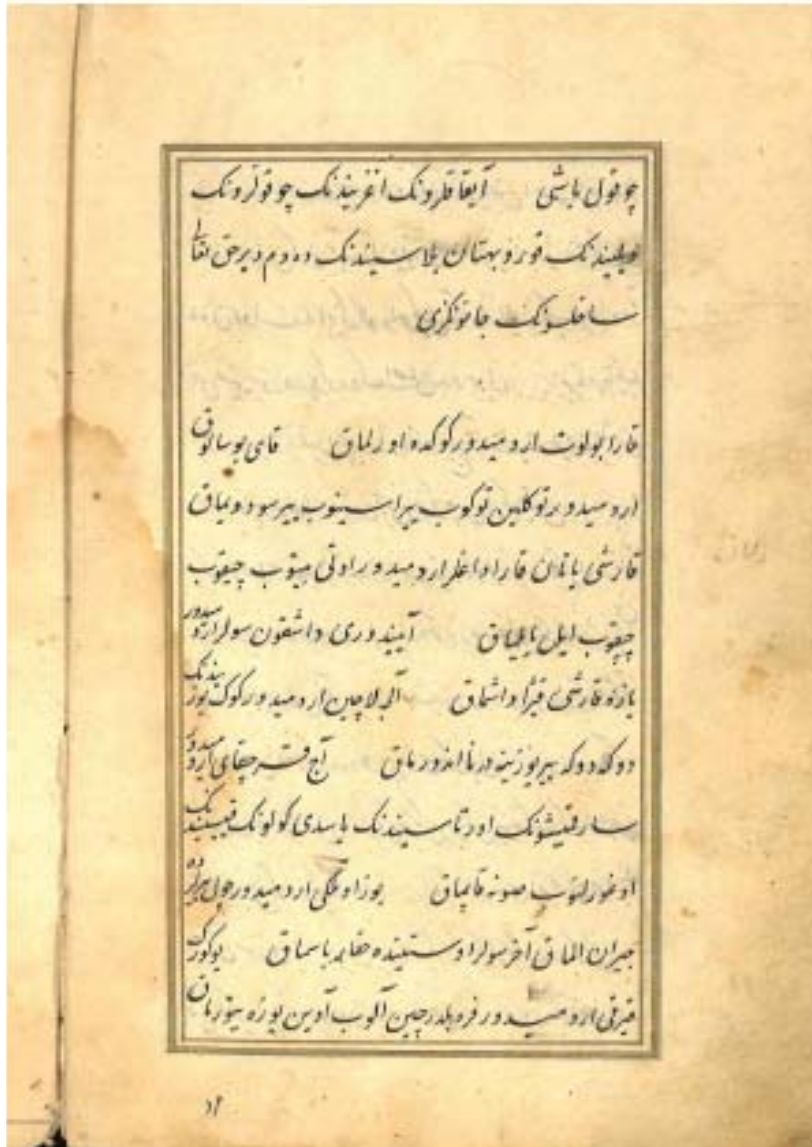 چوقول باشی آیقاقلرونک اغزیندنک چوقولرونک
دیلیندنک قورو بهتان بلاسیندنک ددم دیر حق تعالی
ساخلسونک جانونکزی
قارا بولوت اردمیدور کوکده اورلماق قای بوسانوق
اردمیدور توکلین توکوب ییر اسینوب ییر سودویماق
قارشی یاتان قارا داغلر اردمیدور اوتی بیتوب چیقوب
چیقوب ایل یایلماق آییندوری داشقون سولر اردمیدور
یازه قارشی قیژا داشماق الا لاچین اردمیدور کوک یوزیندنک
دوکه دوکه ییر یوزینه درنا اندورماق آج قره چقای اردمیدور
سارقمیشونک اورتاسیندنک یاسدی کولونک قیسیندنک
اوغورلیوب صونه قاپماق بوز اوکی اردمیدور چول یرلرده
جیران الماق آخر سولر اوستینده خانه باسماق یوکورک
قیرقی اردمیدور قره بلدرچین آلوب آوین یوزه یتورماق